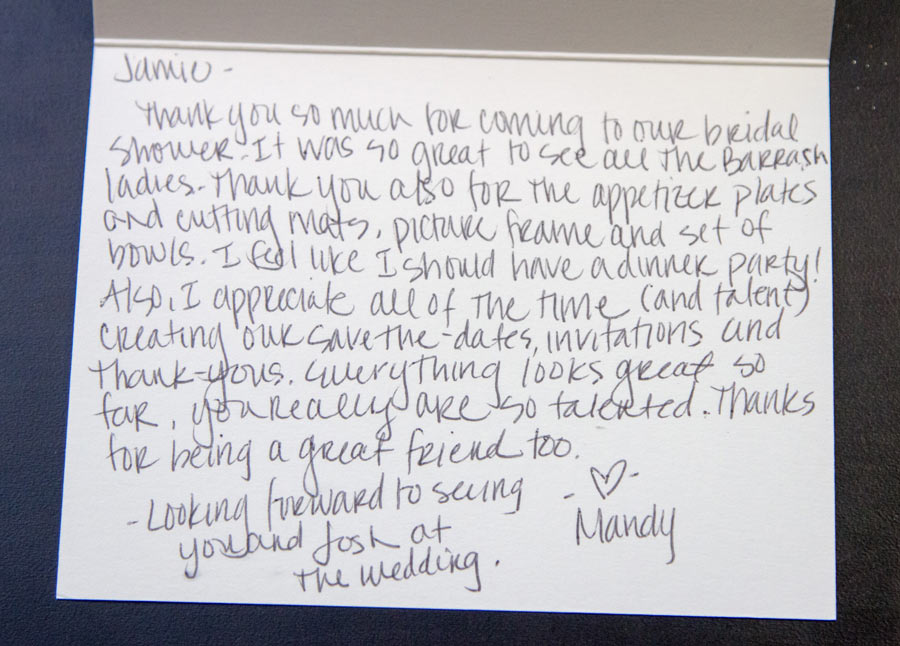 Jamie -
Thank you so much for coming to our bridal
shower. It was so great to see all the Barrash
ladies. Thank you also for the appetizer plates
and cutting mats, picture frame and set of
bowls. I feel like I should have a dinner party!
Also, I appreciate all of the time (and talent)
creating our save-the-dates, invitations and
thank-yous. Everything looks great so
far, you really are so talented. Thanks
for being a great friend too.
- Looking forward to seeing
you and Josh at
the wedding.
- ♡ -
Mandy